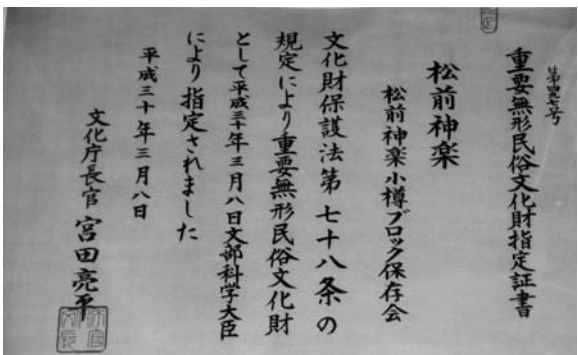 第四五七号
重要無形民俗文化財指定証書
松前神楽
松前神楽小樽ブロック保存会
文化財保護法第七十八条の
規定により重要無形民俗文化財
として平成三十年三月八日文部科学大臣
により指定されました
平成三十年三月八日
文化庁長官 宮田亮平